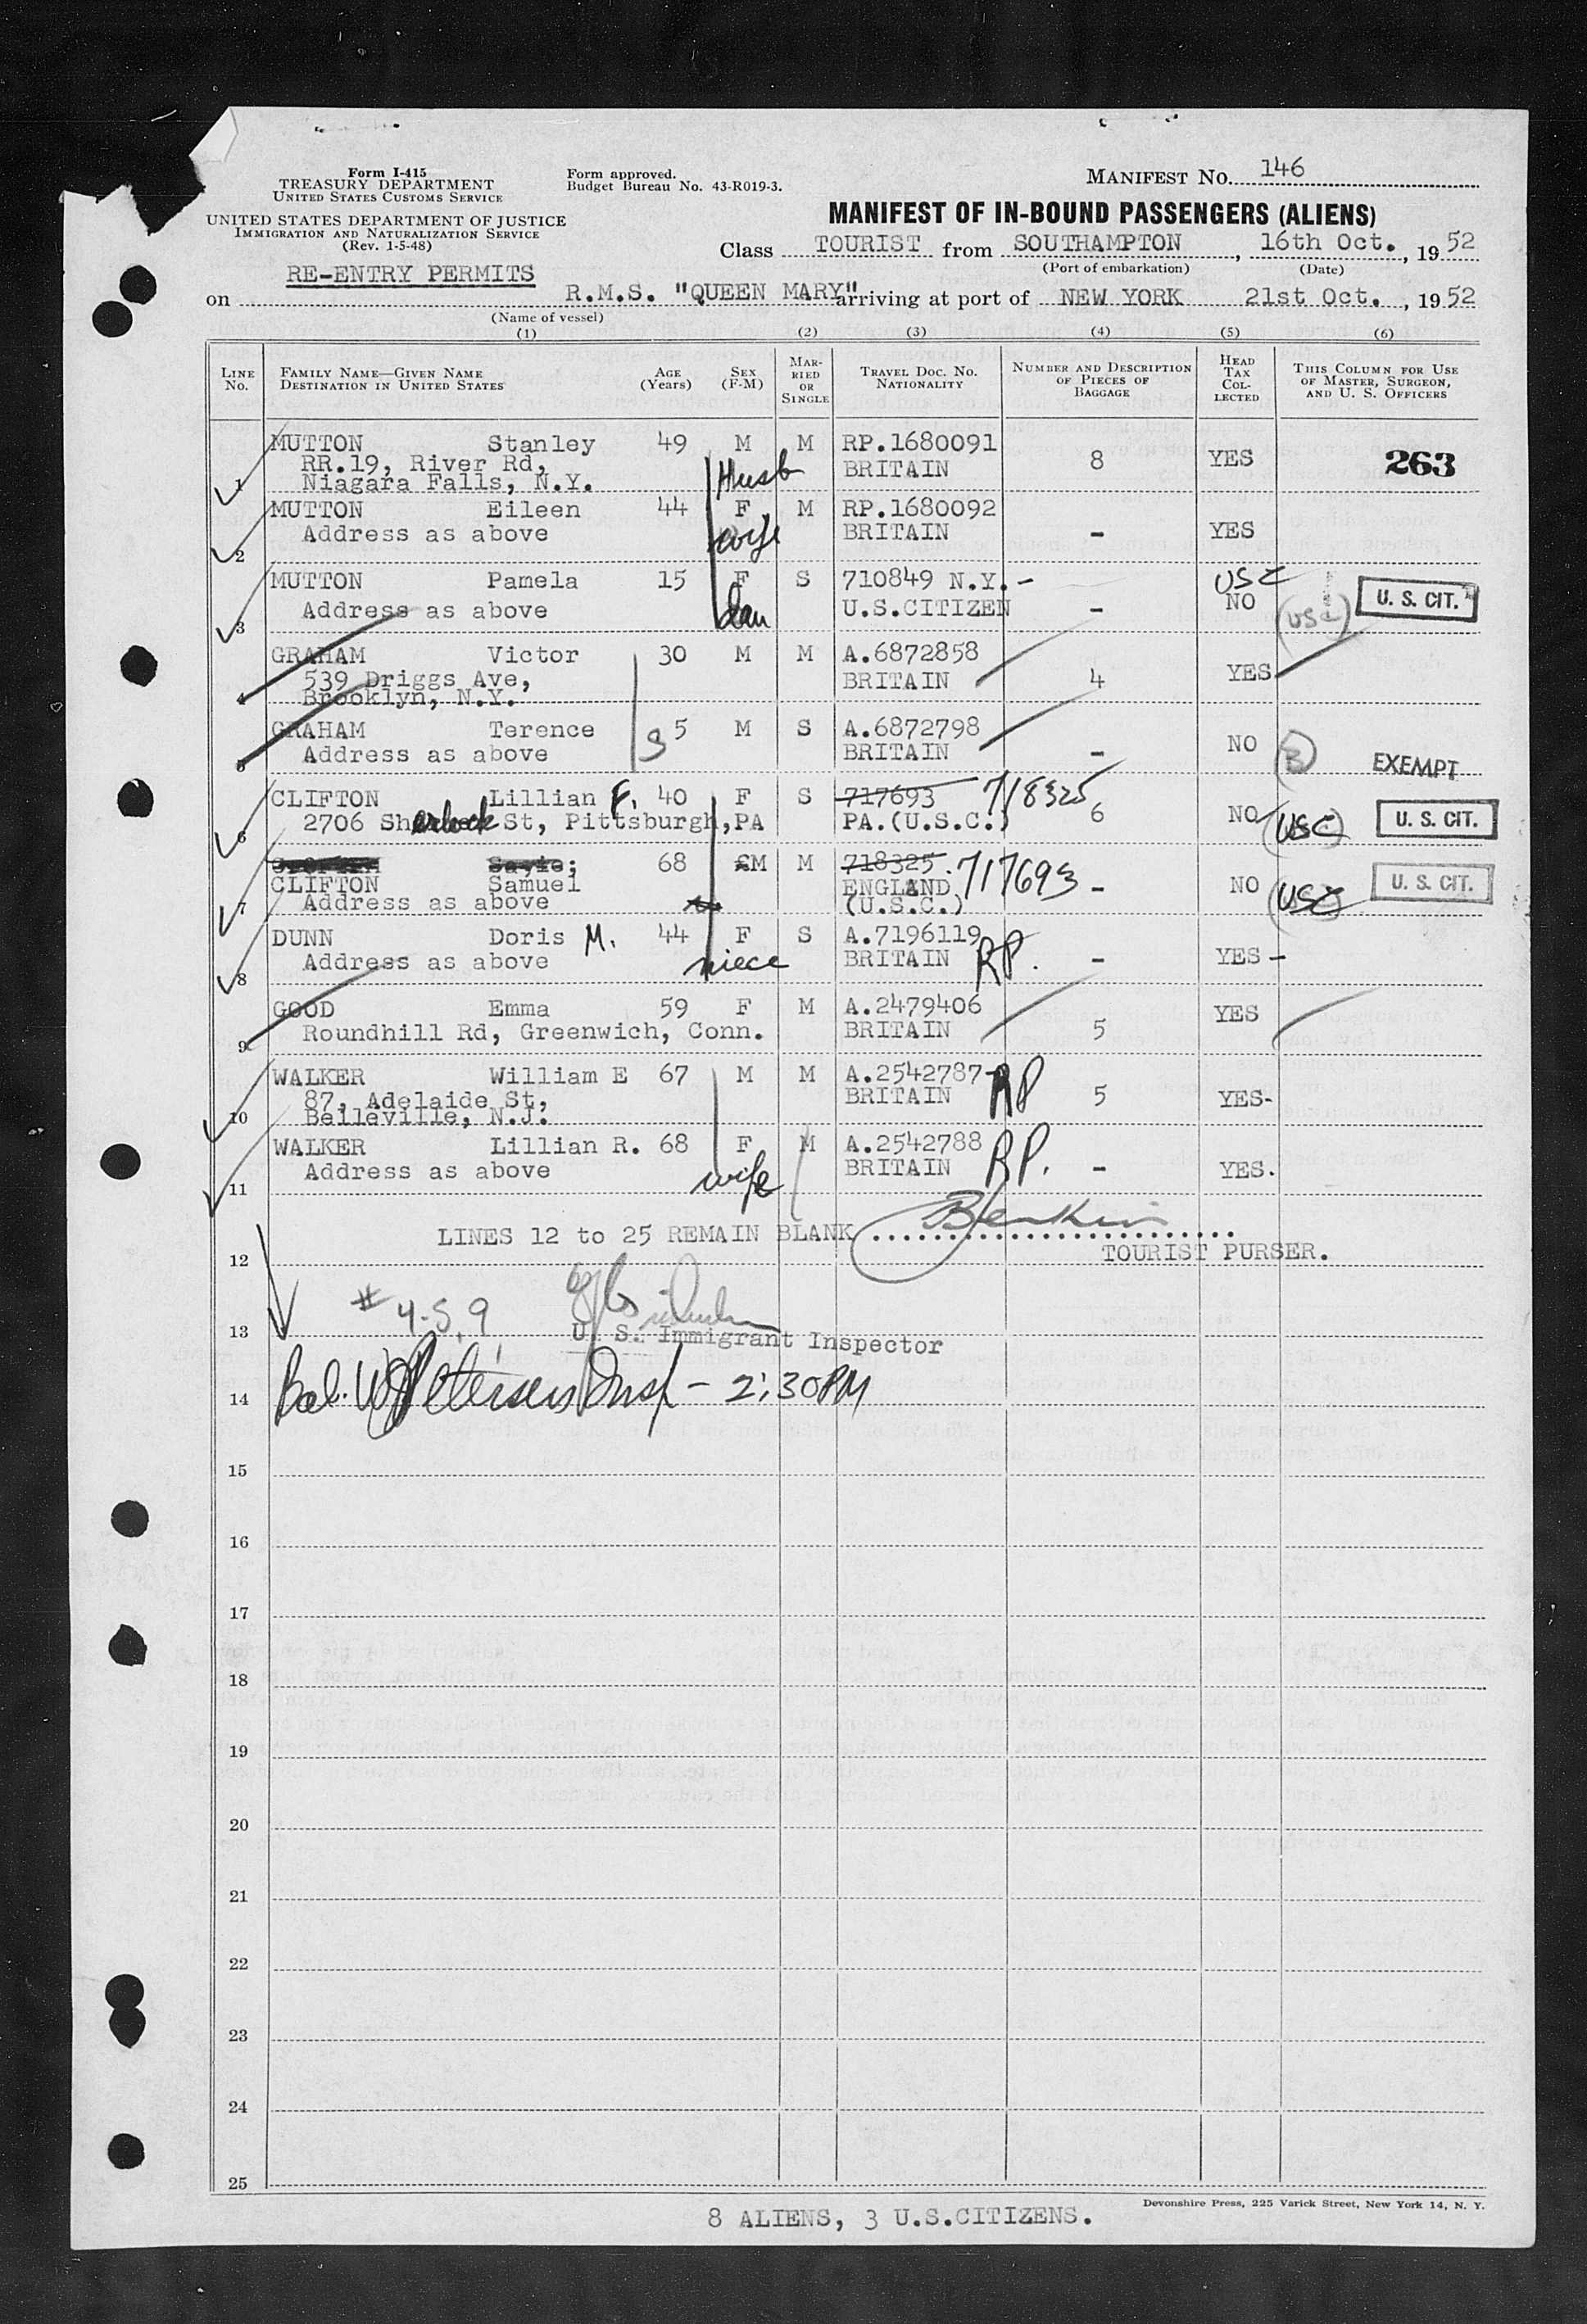 Form I-415
TREASURY DEPARTMENT
UNITED STATES CUSTOMS SERVICE
UNITED STATES DEPARTMENT OF JUSTICE
IMMIGRATION AND NATURALIZATION SERVICE
(Rev. 1-5-48)
Form approved.
Budget Bureau No. 43-R019-3.
MANIFEST NO. 146
MANIFEST OF IN-BOUND PASSENGERS (ALIENS)
Class TOURIST from SOUTHAMPTON, 16th Oct., 1952
(Port of embarkation) (Date)
RE-ENTRY PERMITS
on R.M.S. "QUEEN MARY" arriving at port of NEW YORK 21st Oct., 1952
(Name of vessel)
(1) (2) (3) (4) (5) (6)
LINE No. FAMILY NAME—GIVEN NAME DESTINATION IN UNITED STATES AGE (Years) SEX (F-M) MARRIED OR SINGLE TRAVEL DOC. NO. NATIONALITY NUMBER AND DESCRIPTION OF PIECES OF BAGGAGE HEAD TAX COLLECTED THIS COLUMN FOR USE OF MASTER, SURGEON, AND U. S. OFFICERS
1 MUTTON Stanley 49 M M RP.1680091 8 YES 263
RR.19, River Rd, Husb BRITAIN
Niagara Falls, N.Y.
2 MUTTON Eileen 44 F M RP.1680092
Address as above wife BRITAIN - YES
3 MUTTON Pamela 15 F S 710849 N.Y.- USC
Address as above dau U.S.CITIZEN - NO (USC) U. S. CIT.
4 GRAHAM Victor 30 M M A.6872858
539 Driggs Ave, BRITAIN 4 YES
Brooklyn, N.Y.
5 GRAHAM Terence 5 M S A.6872798
Address as above BRITAIN - NO EXEMPT
6 CLIFTON Lillian F. 40 F S 717693 718325
2706 Sherlock St, Pittsburgh, PA PA.(U.S.C.) 6 NO USC U. S. CIT.
7 68 M M 718325. 717693
CLIFTON Samuel ENGLAND - NO USC U. S. CIT.
Address as above (U.S.C.)
8 DUNN Doris M. 44 F S A.7196119
Address as above niece BRITAIN RP. - YES -
9 GOOD Emma 59 F M A.2479406 YES
Roundhill Rd, Greenwich, Conn. BRITAIN 5
10 WALKER William E 67 M M A.2542787-
87, Adelaide St, BRITAIN RP 5 YES-
Belleville, N.J.
11 WALKER Lillian R. 68 F M A.2542788
Address as above wife BRITAIN RP. - YES.
LINES 12 to 25 REMAIN BLANK
12 TOURIST PURSER.
# 4-5, 9
13 U. S. Immigrant Inspector
14 Bal. W Petersen Insp - 2:30PM
15
16
17
18
19
20
21
22
23
24
25
Devonshire Press, 225 Varick Street, New York 14, N. Y.
8 ALIENS, 3 U.S.CITIZENS.